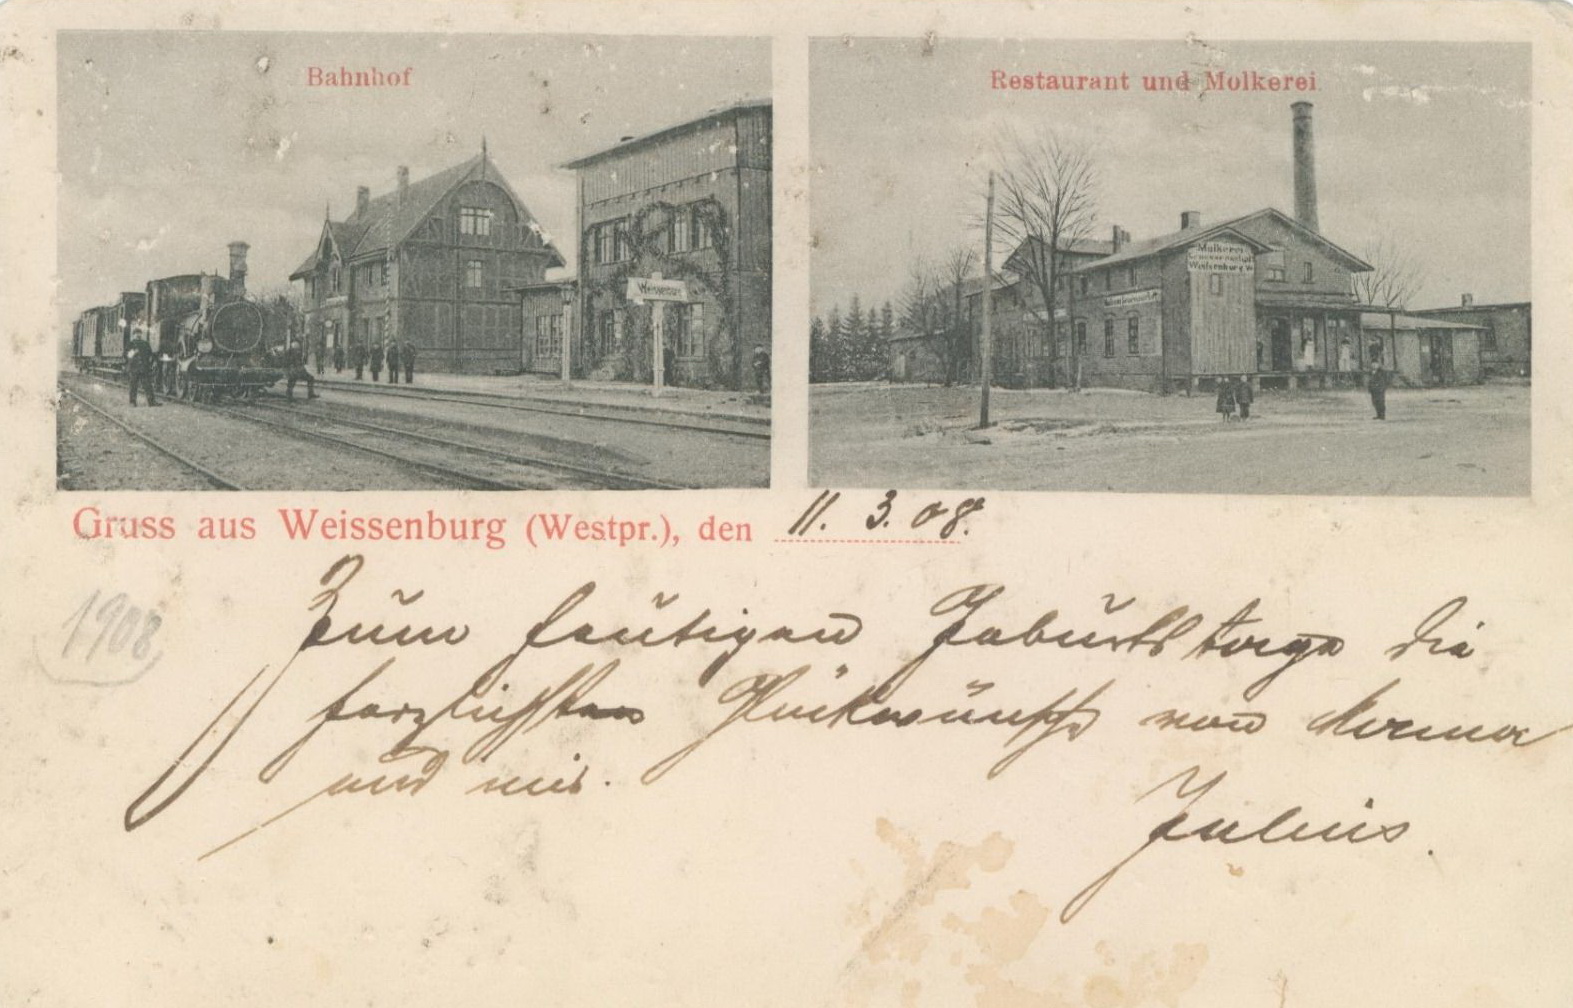 Bahnhof
Restaurant und Molkerei
Weissenburg
Molkerei
Weissenburg W.
Gruss aus Weissenburg (Westpr.), den 11. 3. 08.
1908
Zum heutigen Geburtstage die
herzlichsten Glückwünsche von
und mir.
Julius.